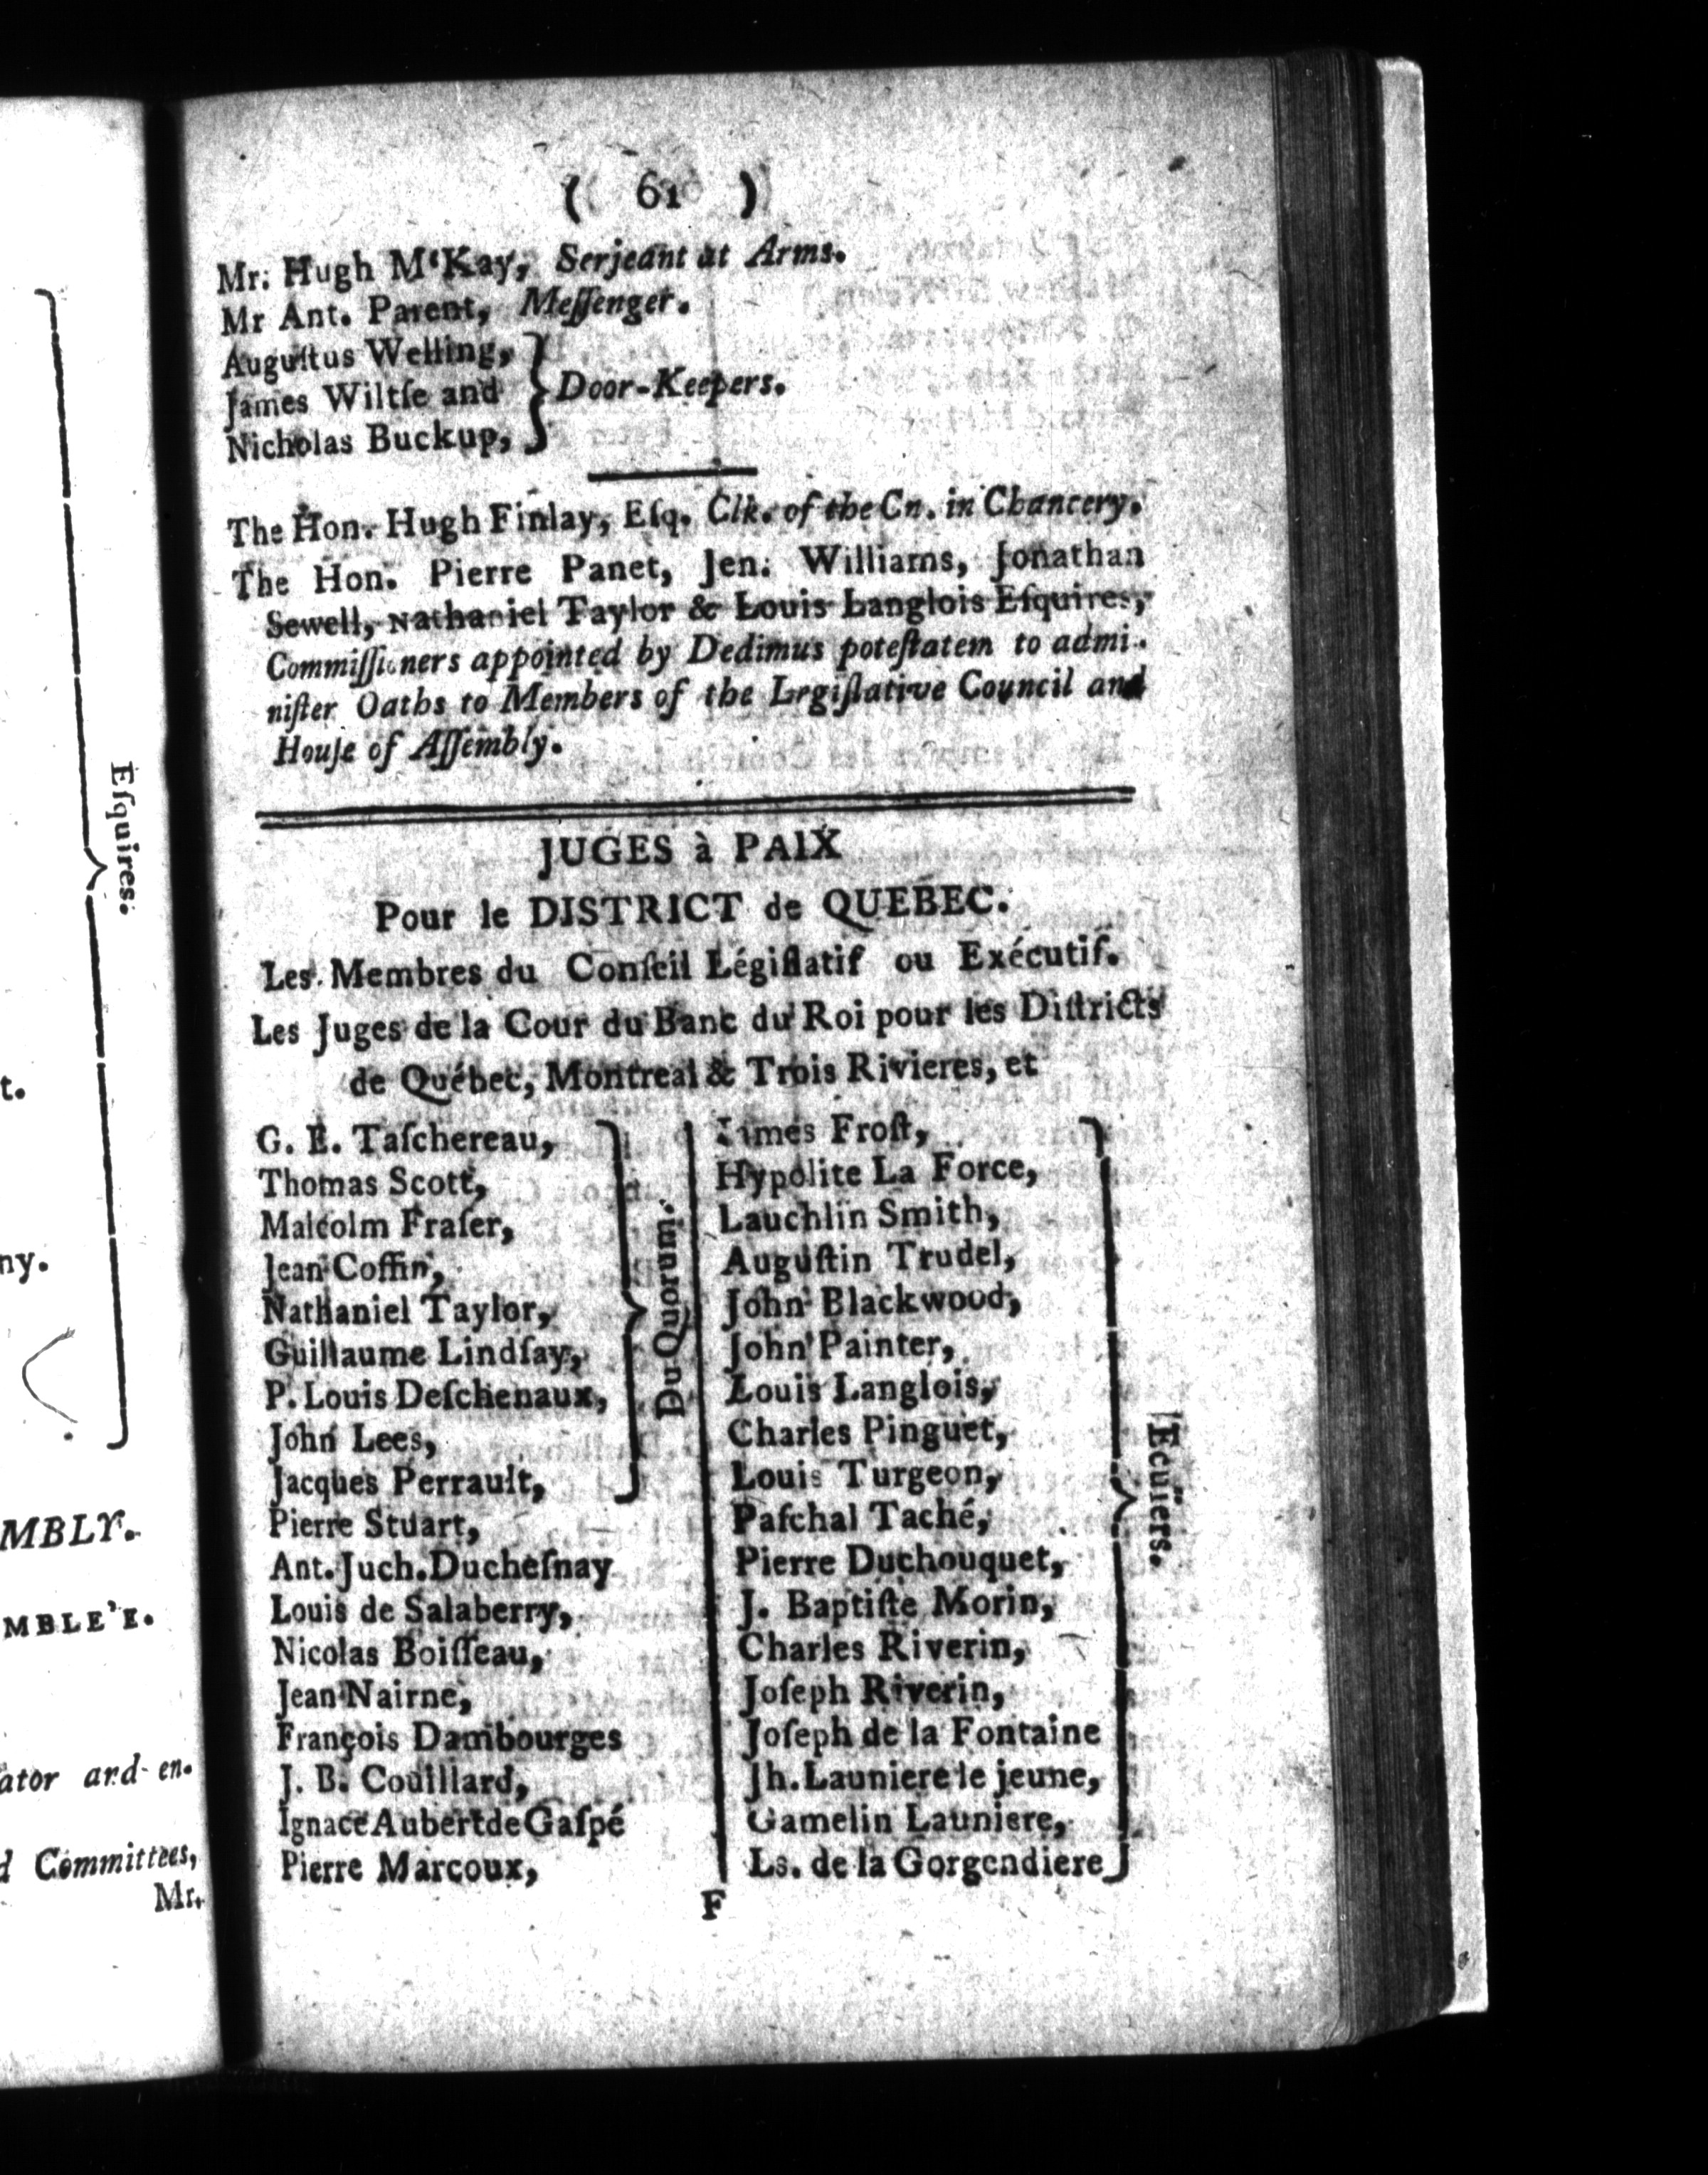 ( 61 )
Mr. Hugh M'Kay, Serjeant at Arms.
Mr Ant. Parent, Meſſenger.
Auguſtus Welling,
James Wiltſe and
Nicholas Buckup,
Door-Keepers.
The Hon. Hugh Finlay, Eſq. Clk. of the Cn. in Chancery.
The Hon. Pierre Panet, Jen. Williams, Jonathan
Sewell, Nathaniel Taylor & Louis Langlois Eſquires,
Commiſſioners appointed by Dedimus poteſtatem to admi-
niſter Oaths to Members of the Lrgiſlative Council and
Houſe of Aſſembly.
JUGES à PAIX
Pour le DISTRICT de QUEBEC.
Les Membres du Conſeil Légiſlatif ou Exécutif.
Les Juges de la Cour du Banc du Roi pour les Diſtricts
de Québec, Montreal & Trois Rivieres, et
G. E. Taſchereau,
Thomas Scott,
Malcolm Fraſer,
Jean Coffin,
Nathaniel Taylor,
Guillaume Lindſay,
P. Louis Deſchenaux,
John Lees,
Jacques Perrault,
Du Quorum.
Pierre Stuart,
Ant. Juch. Ducheſnay
Louis de Salaberry,
Nicolas Boiſſeau,
Jean Nairne,
François Dambourges
J. B. Couillard,
Ignace Aubert de Gaſpé
Pierre Marcoux,
James Froſt,
Hypolite La Force,
Lauchlin Smith,
Auguſtin Trudel,
John Blackwood,
John Painter,
Louis Langlois,
Charles Pinguet,
Louis Turgeon,
Paſchal Taché,
Pierre Duchouquet,
J. Baptiſte Morin,
Charles Riverin,
Joſeph Riverin,
Joſeph de la Fontaine
Jh. Launiere le jeune,
Gamelin Launiere,
Ls. de la Gorgendiere
Ecuïers.
F
Eſquires.
t.
ny.
MBLY.
MBLE'E.
ator and en.
d Committees,
Mr.